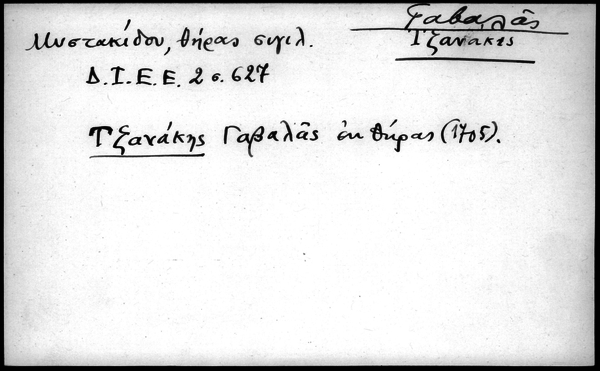 Γαβαλᾶς
Μυστακίδου, Θήρας σιγιλ. Τζανάκης
Δ.Ι.Ε.Ε. 2 σ. 627
Τζανάκης Γαβαλᾶς ἐκ Θήρας (1705).